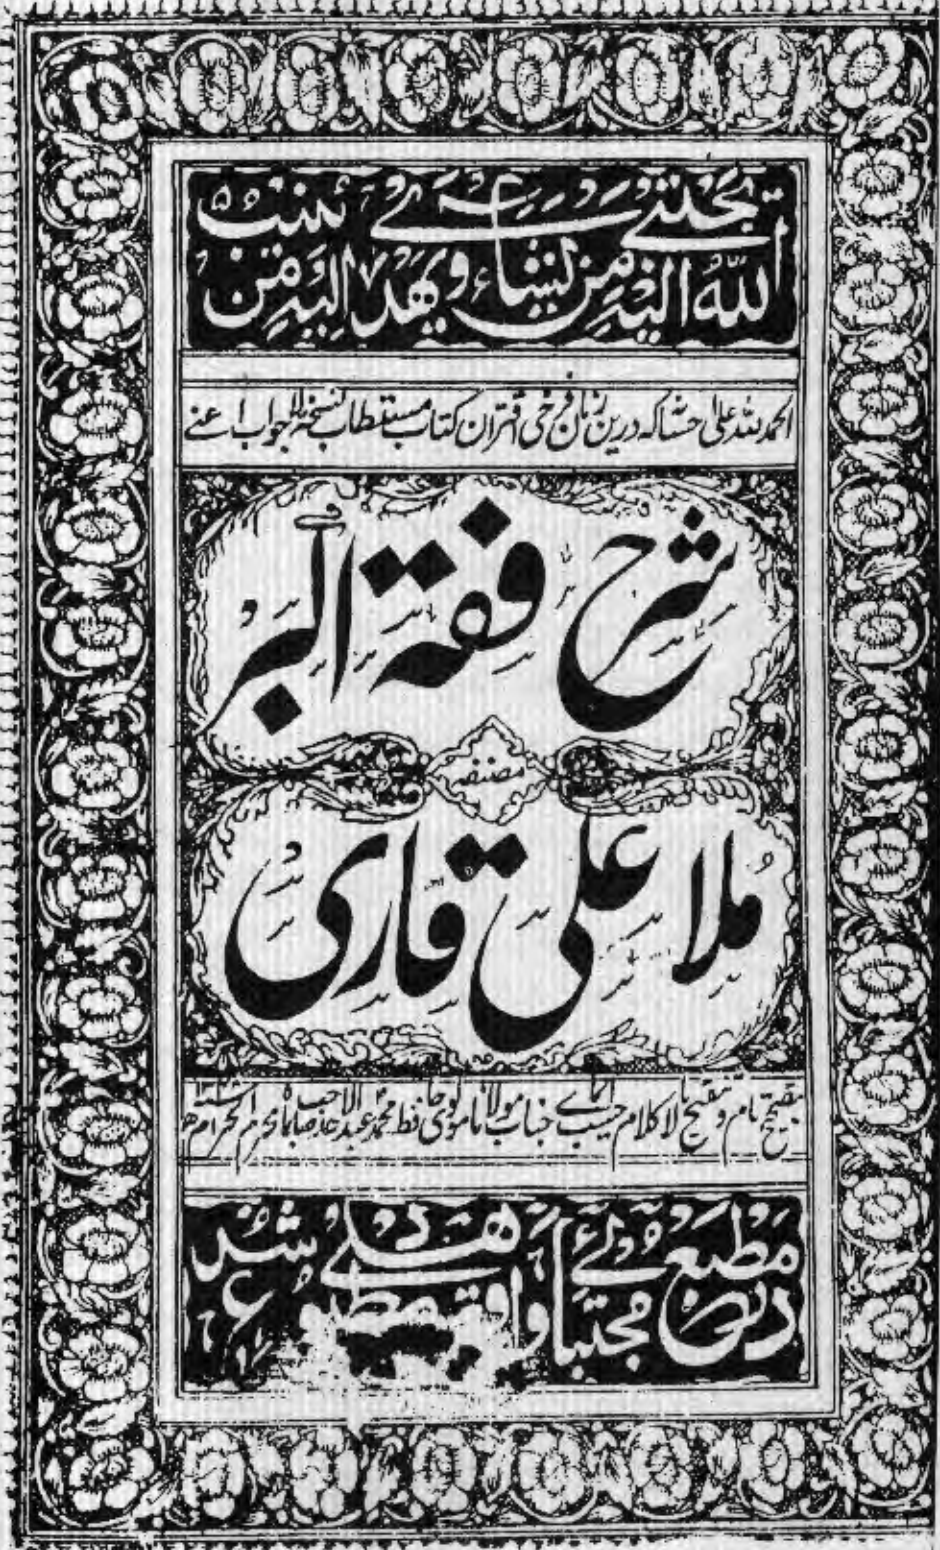 اللّٰهُ يجتبي اليه من يشاء ويهدي اليه من ينيب
الحمد لله على احسانه كه درين زمان فرخى اقتران كتاب مستطاب نسخه لاجواب اعنے
شرح فقه اكبر
مصنفه
ملا علی قاری
بتصحيح تام و تنقيح لا كلام حسب ايماے جناب مولانا مولوی حافظ محمد عبد الاحد صاحب بماه محرم الحرام
در مطبع مجتبائی واقع دهلی مطبوع شد